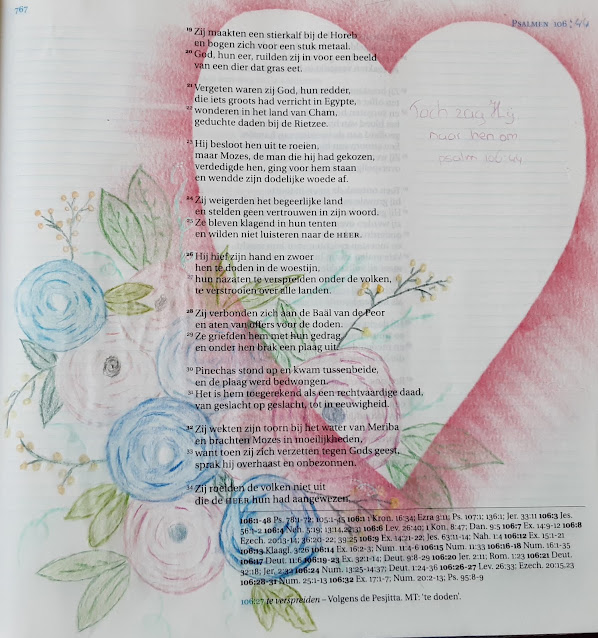 767
PSALMEN 106:44
19 Zij maakten een stierkalf bij de Horeb
en bogen zich voor een stuk metaal.
20 God, hun eer, ruilden zij in voor een beeld
van een dier dat gras eet.
21 Vergeten waren zij God, hun redder,
die iets groots had verricht in Egypte,
22 wonderen in het land van Cham,
geduchte daden bij de Rietzee.
23 Hij besloot hen uit te roeien,
maar Mozes, de man die hij had gekozen,
verdedigde hen, ging voor hem staan
en wendde zijn dodelijke woede af.
24 Zij weigerden het begeerlijke land
en stelden geen vertrouwen in zijn woord.
25 Ze bleven klagend in hun tenten
en wilden niet luisteren naar de HEER.
26 Hij hief zijn hand en zwoer
hen te doden in de woestijn,
27 hun nazaten te verspreiden onder de volken,
te verstrooien over alle landen.
28 Zij verbonden zich aan de Baäl van de Peor
en aten van offers voor de doden.
29 Ze griefden hem met hun gedrag,
en onder hen brak een plaag uit.
30 Pinechas stond op en kwam tussenbeide,
en de plaag werd bedwongen.
31 Het is hem toegerekend als een rechtvaardige daad,
van geslacht op geslacht, tot in eeuwigheid.
32 Zij wekten zijn toorn bij het water van Meriba
en brachten Mozes in moeilijkheden,
33 want toen zij zich verzetten tegen Gods geest,
sprak hij overhaast en onbezonnen.
34 Zij roeiden de volken niet uit
die de HEER hun had aangewezen,
Toch zag Hij
naar hen om
psalm 106:44
106:1-48 Ps. 78:1-72; 105:1-45 106:1 1 Kron. 16:34; Ezra 3:11; Ps. 107:1; 136:1; Jer. 33:11 106:3 Jes.
56:1-2 106:4 Neh. 5:19; 13:14,22,31 106:6 Lev. 26:40; 1 Kon. 8:47; Dan. 9:5 106:7 Ex. 14:9-12 106:8
Ezech. 20:13-14; 36:20-22; 39:25 106:9 Ex. 14:21-22; Jes. 63:11-14; Nah. 1:4 106:12 Ex. 15:1-21
106:13 Klaagl. 3:26 106:14 Ex. 16:2-3; Num. 11:4-6 106:15 Num. 11:33 106:16-18 Num. 16:1-35
106:17 Deut. 11:6 106:19-23 Ex. 32:1-14; Deut. 9:8-29 106:20 Jer. 2:11; Rom. 1:23 106:21 Deut.
32:18; Jer. 2:32 106:24 Num. 13:25-14:37; Deut. 1:24-36 106:26-27 Lev. 26:33; Ezech. 20:15,23
106:28-31 Num. 25:1-13 106:32 Ex. 17:1-7; Num. 20:2-13; Ps. 95:8-9
106:27 te verspreiden – Volgens de Pesjitta. MT: 'te doden'.